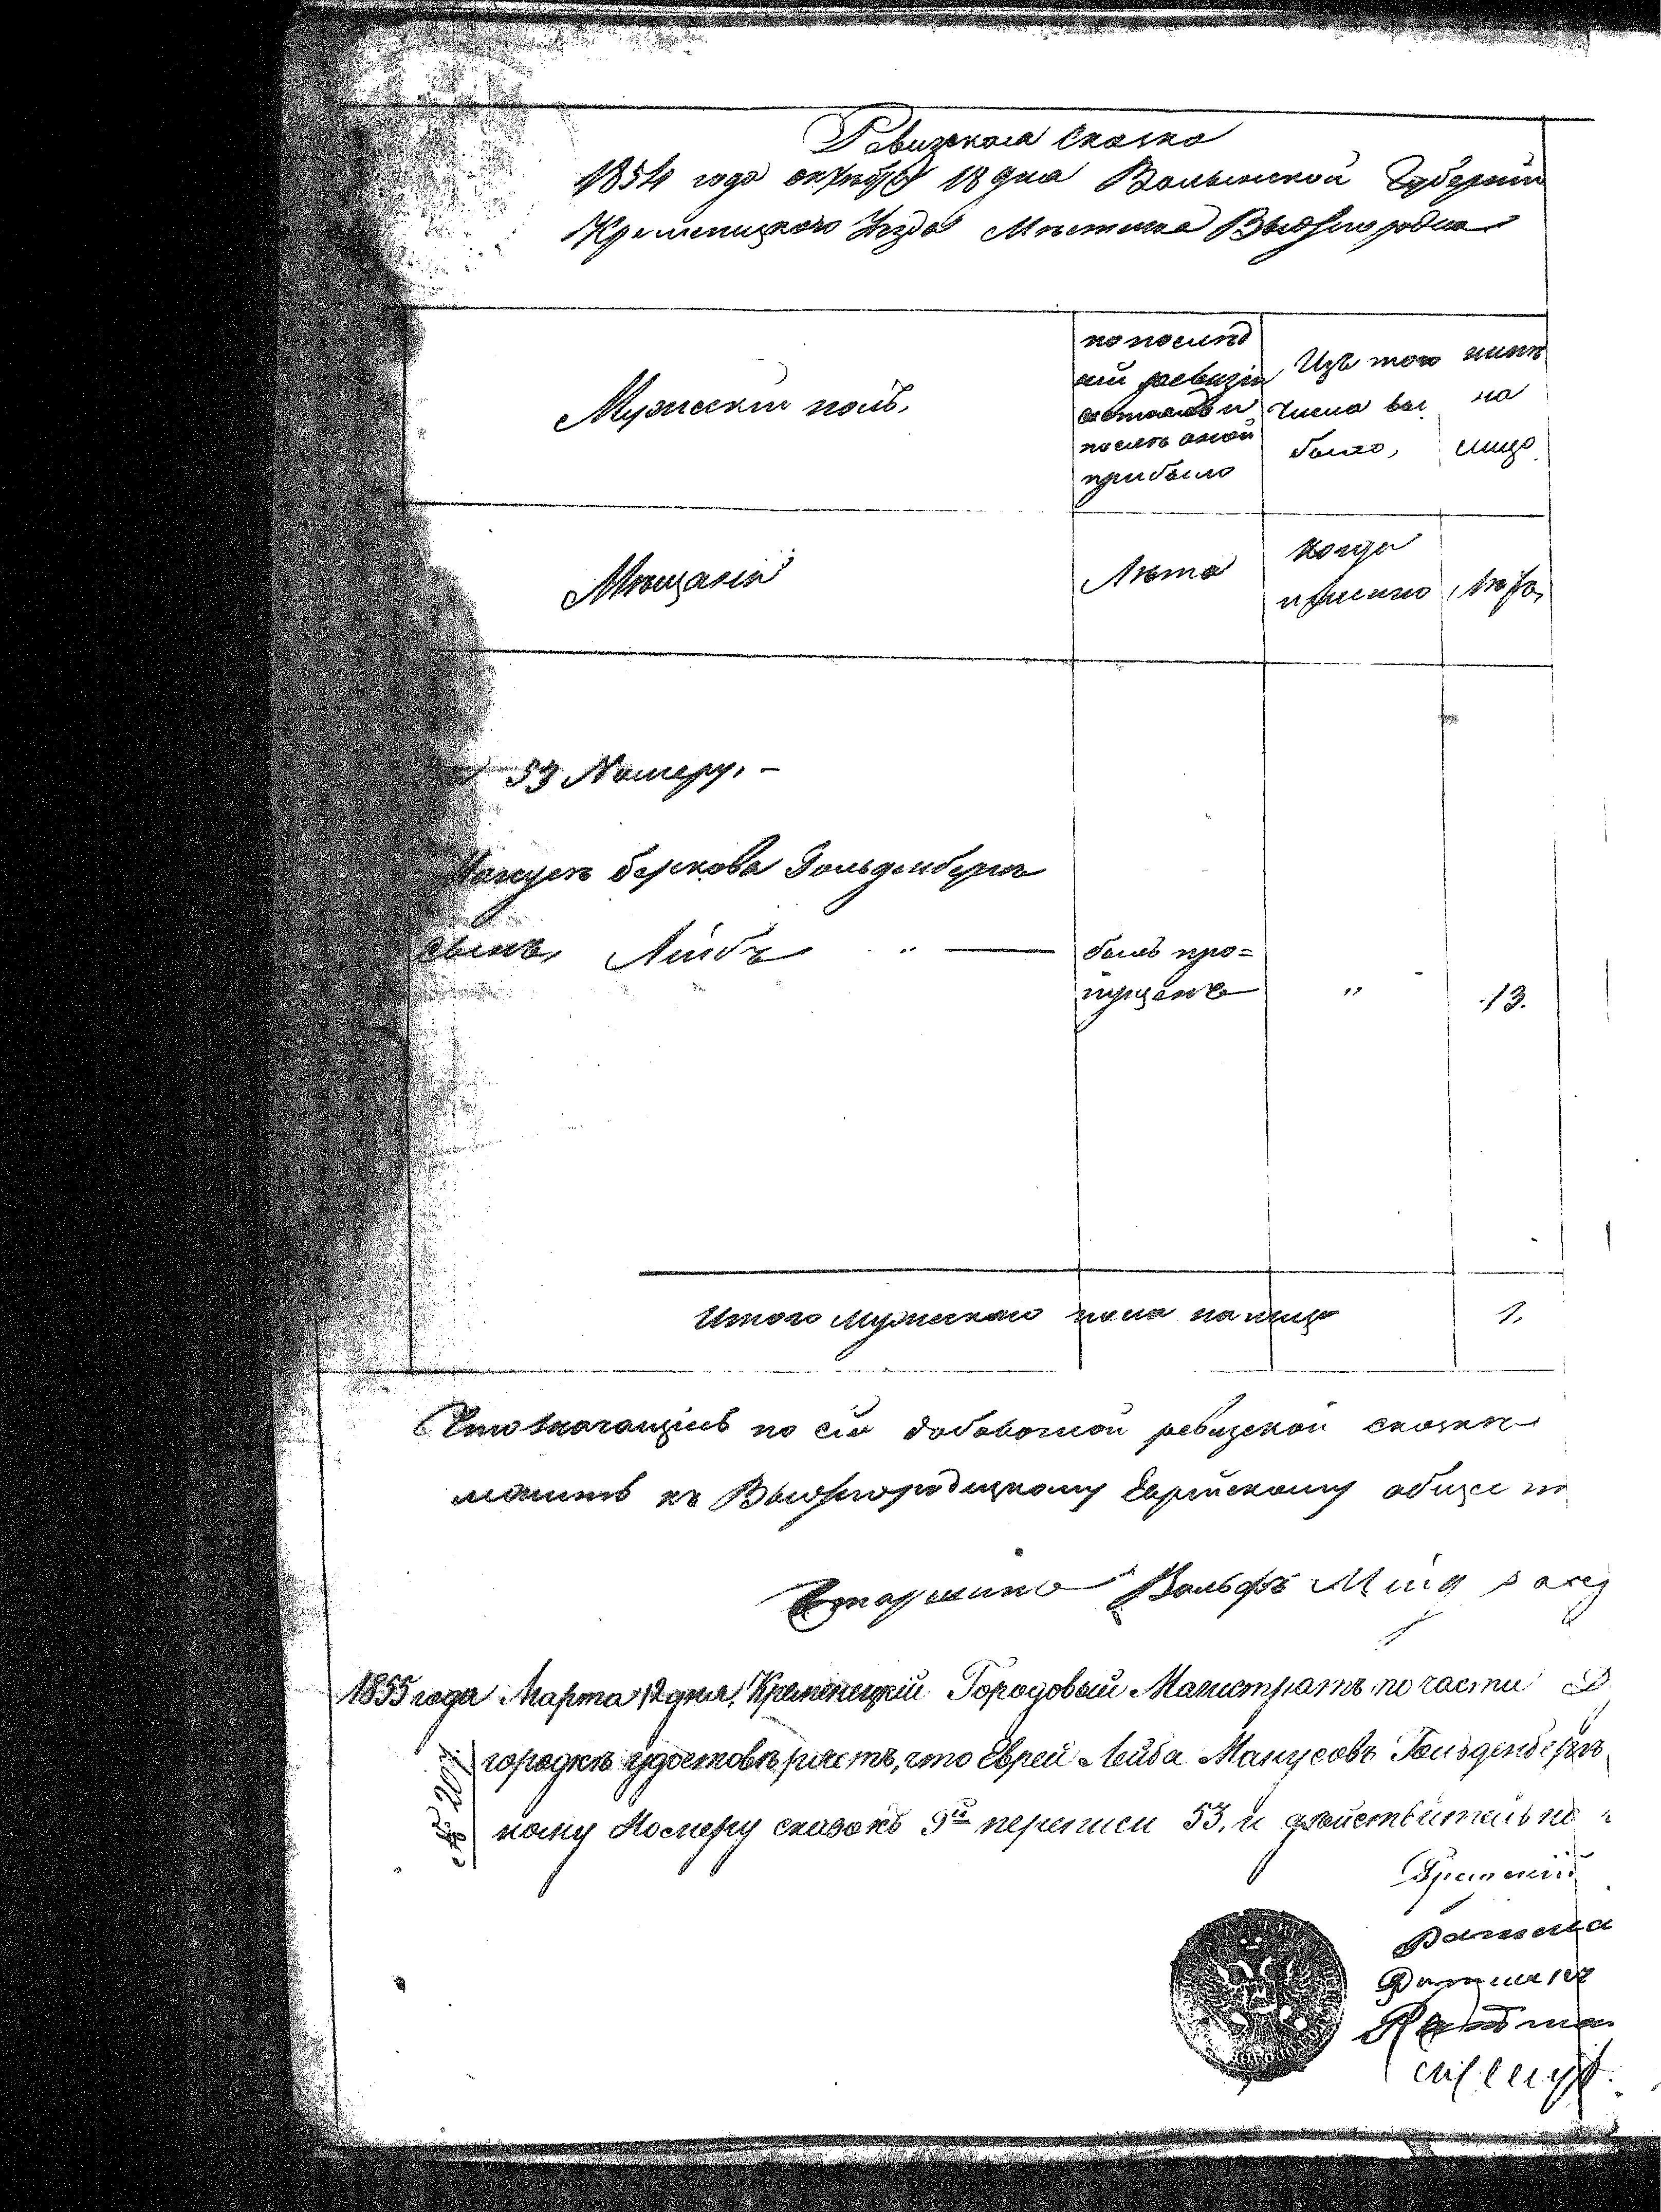 Ревизская Сказка
1854 года октября 18 дня Волынской Губернии
Кременецкого Уезда Местечка Вышгородка
Мужеский полъ,
по послед
ней ревизіи
состояло и
после оной
прибыло
Изъ того
числа вы
было,
ныне
на
лицо
Мещане
Лета
когда
именно
Лета,
53 Номеру. -
Манусъ Берковъ Гольденбергъ
сынъ, Лейба " —
былъ про=
пущенъ
"
13.
Итого мужеска пола на лицо 1.
по сей добавочной ревизской сказке
къ Вышгородецкому Еврейскому обще
Старшина Вольфъ
1855 года Марта 12 дня, Кременецкій Городовый Магистратъ по части В
городкъ удостовѣряетъ, что Еврей Лейба Манусовъ Гольденбергъ
ному Номеру сказокъ 9й переписи 53, и действительно
№ 207.
Ратман